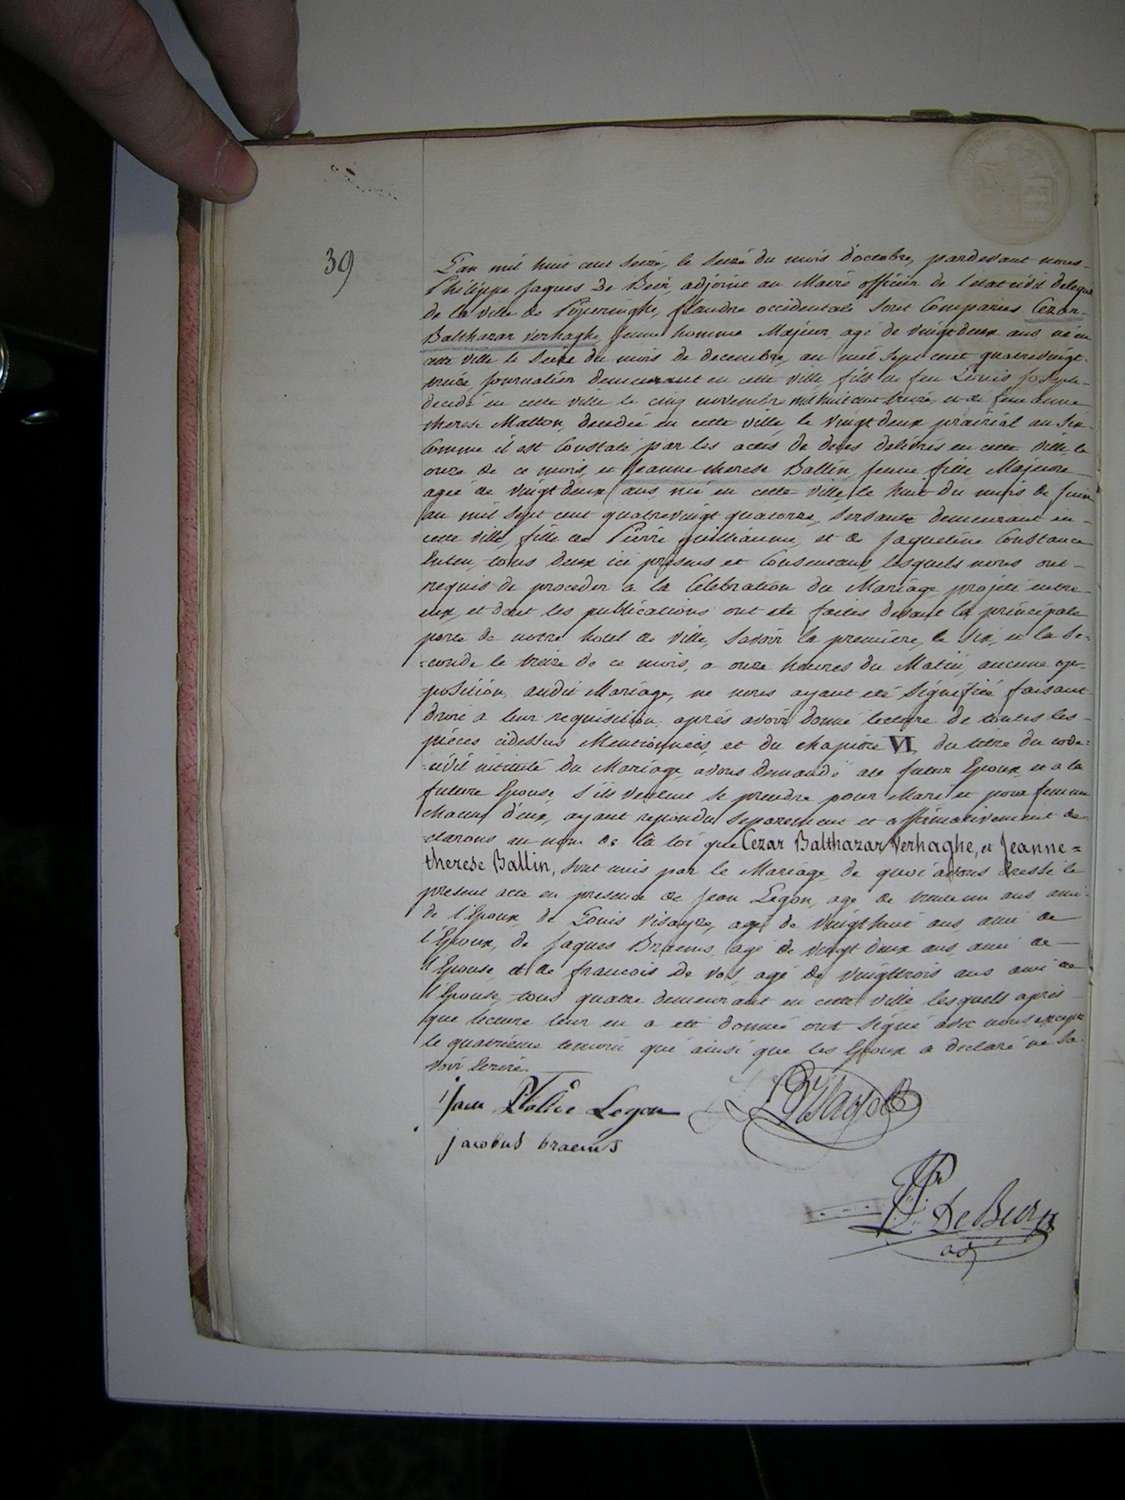 39
L'an mil huit cent seize, le seize du mois d'octobre, pardevant nous-
Philippe Jaques De Beir, adjoint au Maire officier de l'etat civil delegué
de la ville de Poperinghe, flandre occidentale sont Comparus Cezar-
Balthazar Verhaghe, jeune homme Majeur, agé de vingt deux ans né en
cette ville le seize du mois de decembre, an mil sept cent quatrevingt-
treize, journalier demeurant en cette ville, fils de feu Louis Joseph-
decedé en cette ville le cinq novembre mil huit cent treize, et de feue anne
therese Matton, decedée en cette ville, le vingt deux prairial an six-
Comme il est Constaté par les actes de deces delivrés en cette ville le
onze de ce mois, et Jeanne therese Ballin, jeune fille Majeure
agée de vingt deux ans née en cette ville, le huit du mois de juin
an mil sept cent quatrevingt quatorze, servante demeurant en-
cette ville, fille de Pierre guillaume, et de Jaqueline Constance
tous deux ici presens et Consentans, lesquels nous ont-
requis de proceder a la Celebration du Mariage projeté entre-
eux, et dont les publications ont eté faites devant la principale
porte de notre hotel de ville, savoir la premiere, le six, et la se-
-conde le treize de ce mois, a onze heures du Matin, aucune op-
position, audit Mariage, ne nous ayant eté signifiée faisant
droit a leur requisition, après avoir donné lecture de toutes les-
pièces cidessus Mentionnées, et du chapitre VI, du titre du code-
civil intitulé du Mariage, avons demandé au futur Epoux, et a la
future Epouse, s'ils veulent se prendre pour Mari et pour femme
chacun d'eux, ayant repondu separement et affirmativement de-
clarons au nom de la loi que Cezar Balthazar Verhaghe, et Jeanne=
therese Ballin, sont unis par le Mariage, de quoi avons dressé le
present acte en presence de Jean Legon, agé de trente un ans ami-
de l'Epoux, de Louis agé de vingt huit ans ami de
l'Epoux, de Jaques Braems, agé de vingt deux ans, ami de-
l'Epouse et de francois De Vos, agé de vingttrois ans ami de
l'Epouse, tous quatre demeurant en cette ville lesquels après-
que lecture leur en a eté donnée ont signé avec nous excepté
le quatrieme temoin qui ainsi que les Epoux a declaré ne sa-
voir Ecrire.
Jan Legon
jacobus braems
De Beir
adj